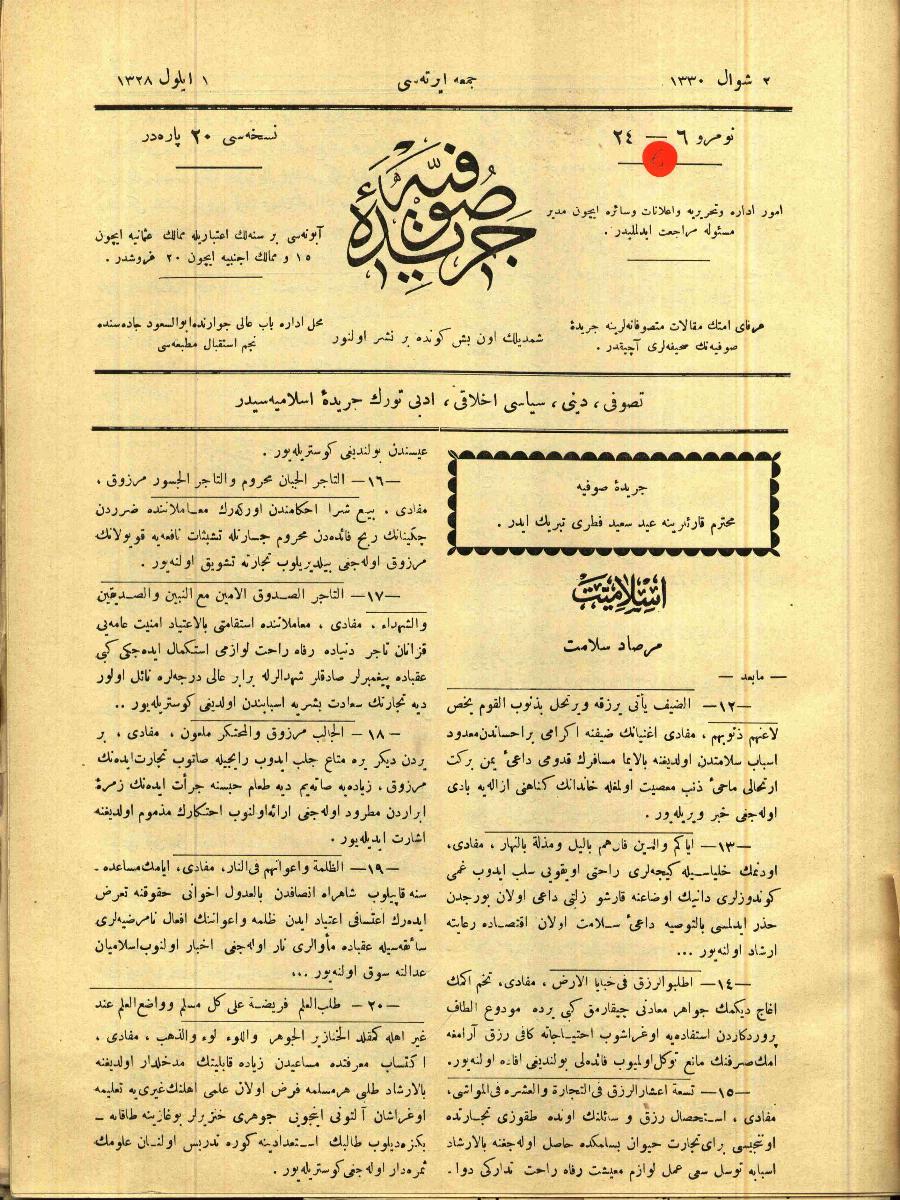 ٢ شوال ١٣٣٠
جمعه ایرتەسی
١ ایلول ١٣٢٨
نومرو ٦ — ٢٤
نسخەسی ٢٠ پارەدر
جریدۀ صوفیه
امور اداره وتحریریه واعلانات وسائره ایچون مدیر
مسئوله مراجعت ایدلملیدر .
آبونەسی بر سنەلك اعتباریله ممالك عثمانیه ایچون
١٥ و ممالك اجنبیه ایچون ٢٠ غروشدر .
عرفای امتك مقالات متصوفانەلرینه جریدۀ
صوفیەنك صحیفەلری آچیقدر .
شمدیلك اون بش کونده بر نشر اولنور
محل اداره باب عالی جوارنده ابوالسعود جادەسنده
نجم استقبال مطبعەسی
تصوفی ، دینی ، سیاسی اخلاقی ، ادبی تورك جریدۀ اسلامیەسیدر
جریدۀ صوفیه
محترم قارئلرینه عید سعید فطری تبریك ایدر .
اسلامیت
مرصاد سلامت
— مابعد —
—١٢— الضیف یأتی برزقه ویرتحل بذنوب القوم یمحص
لاعنهم ذنوبهم ، مفادی اغنیانك ضیفنه اکرامی براحساندن معدود
اسباب سلامتدن اولدیغنه بالایما مسافرك قدومی داعیٔ یمن برکت
ارتحالی ماحیٔ ذنب معصیت اولمغله خاندانك کناهنی ازالەیه بادی
اولەجغی خبر ویریلەیور .
—١٣— ایاکم والدین فانهم بالیل ومذلة بالنهار ، مفادی ،
اودنمك خلیاسیله کیجەلری راحتی اویقویی سلب ایدوب غمی
کوندوزلری داینك اوضاعنه قارشو زلتی داعی اولان بورجدن
حذر ایدلمسی بالتوصیه داعیٔ سلامت اولان اقتصاده رعایته
ارشاد اولنەیور ...
—١٤— اطلبوالرزق فی خبایا الارض ، مفادی ، تخم اکمك
اغاج دیکمك جواهر معادنی چیقارمق کبی یرده مودوع الطاف
پروردکاردن استفادەیه اوغراشوب احتیاجاته کافی رزق آرامغه
امك صرفنك مانع توکل اولمیوب فائدەلی بولندیغی افاده اولنەیور.
—١٥— تسعة اعشارالرزق فی التجارة والعشره فی المواشی ،
مفادی ، استحصال رزق و سائلنك اونده طقوزی تجارتده
اونیجیسی برای تجارت حیوان بسلمکده حاصل اولەجغنه بالارشاد
اسبابه توسل سعی عمل لوازم معیشت رفاه راحت تدارکی دوا ـ
عیسندن بولندیغی کوستریلەیور .
—١٦— التاجر الجبان محروم والتاجر الجسور مرزوق ،
مفادی ، بیع شرا احکامندن اورکەرك معاملاتنده ضرردن
چکینانك ربح فائدەدن محروم جسارتله تشبثات نافعەیه قویولانك
مرزوق اولەجغی بیلدیریلوب تجارته تشویق اولنەیور .
—١٧— التاجر الصدوق الامین مع النبین والصدیقین
والشهداء ، مفادی ، معاملاتنده استقامتی بالاعتیاد امنیت عامەیی
قزانان تاجر دنیاده رفاه راحت لوازمی استکمال ایدەجکی کبی
عقباده پیغمبرلر صادقلر شهدالرله برابر عالی درجەلره نائل اولور
دیه تجارتك سعادت بشریه اسبابندن اولدیغی کوستریلەیور ..
—١٨— الجالب مرزوق والمحتکر ملعون ، مفادی ، بر
یردن دیکر یره متاع جلب ایدوب رابحیله صاتوب تجارت ایدەنك
مرزوق ، زیادەیه صاتەیم دیه طعام حبسنه جرأت ایدەنك زمرۀ
ابراردن مطرود اولەجغی ارائه اولنوب احتکارك مذموم اولدیغنه
اشارت ایدیلەیور .
—١٩— الظلمة واعوانهم فی النار ، مفادی ، ایامك مساعدە ـ
سنه قاپیلوب شاهراه انصافدن بالعدول اخوانی حقوقنه تعرض
ایدەرك اعتسافی اعتیاد ایدن ظلمه واعوانك افعال نامرضیەلری
سائقەسیله عقباده مأوالری نار اولەجغی اخبار اولنوب اسلامیان
عدالته سوق اولنەیور ...
—٢٠— طلب العلم فریضة علی کل مسلم وواضع العلم عند
غیر اهله کمقلد الخنازیر الجوهر واللوء لوء والذهب ، مفادی ،
اکتساب معرفتده مساعیدن زیاده قابلیتك مدخلدار اولدیغنه
بالارشاد طلبی هر مسلمه فرض اولان علمی اهلنك غیری یه تعلیمه
اوغراشان آلتونی انجویی جوهری خنزیرلر بوغازینه طاقانه ـ
بکزەدیلوب طالبك استعدادینه کوره تدریس اولنان علومك
ثمرەدار اولەجغی کوستریلەیور .